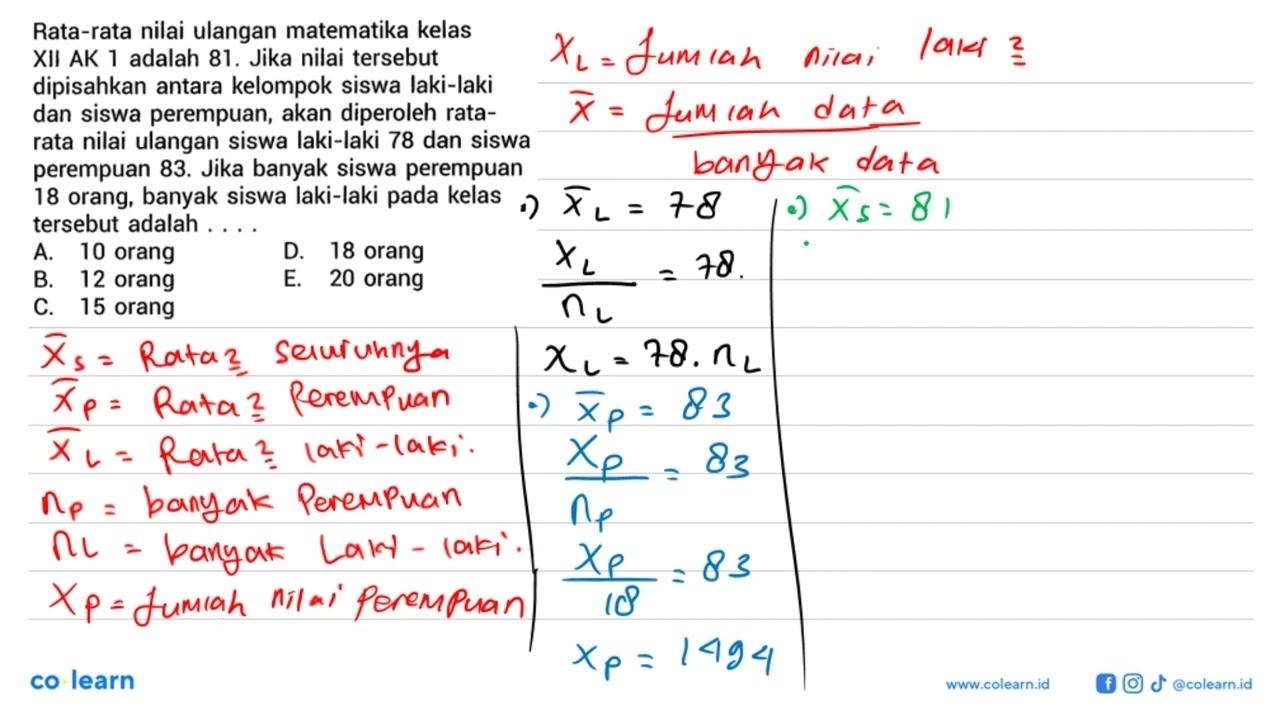 Rata-rata nilai ulangan matematika kelas
XII AK 1 adalah 81. Jika nilai tersebut
dipisahkan antara kelompok siswa laki-laki
dan siswa perempuan, akan diperoleh rata-
rata nilai ulangan siswa laki-laki 78 dan siswa
perempuan 83. Jika banyak siswa perempuan
18 orang, banyak siswa laki-laki pada kelas
tersebut adalah . . . .
A. 10 orang
B. 12 orang
C. 15 orang
D. 18 orang
E. 20 orang
x̄s = Rata2 seluruhnya
x̄p = Rata2 Perempuan
x̄L = Rata2 laki-laki.
np = banyak Perempuan
nL = banyak Laki-laki.
xp = Jumlah nilai Perempuan
xL = Jumlah nilai laki2
x̄ = Jumlah data
banyak data
•) x̄L = 78
xL
= 78.
nL
xL = 78. nL
•) x̄p = 83
xp
= 83
np
xp
= 83
18
xp = 1494
•) x̄s = 81
co learn
www.colearn.id
@colearn.id